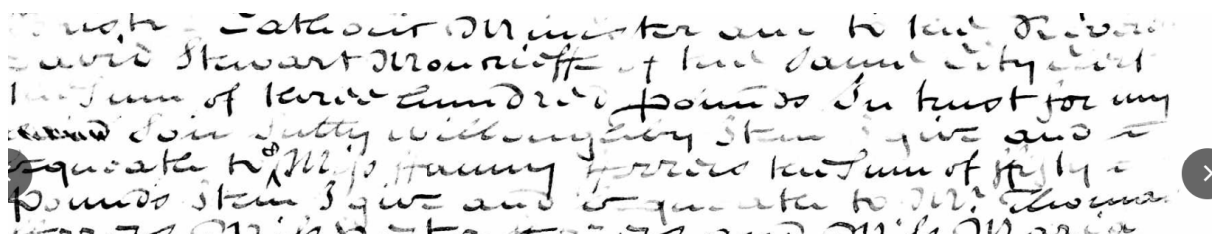 Catholic Minister and to the Revere
David Stewart Moncrieff of the same City Clerk
the Sum of three hundred pounds In trust for my
Son Sutty Willoughby Item I give and
bequeath to Miss Fanny Ferries the Sum of fifty
pounds Item I give and bequeath to Mr. Thomas
and Miss Maria